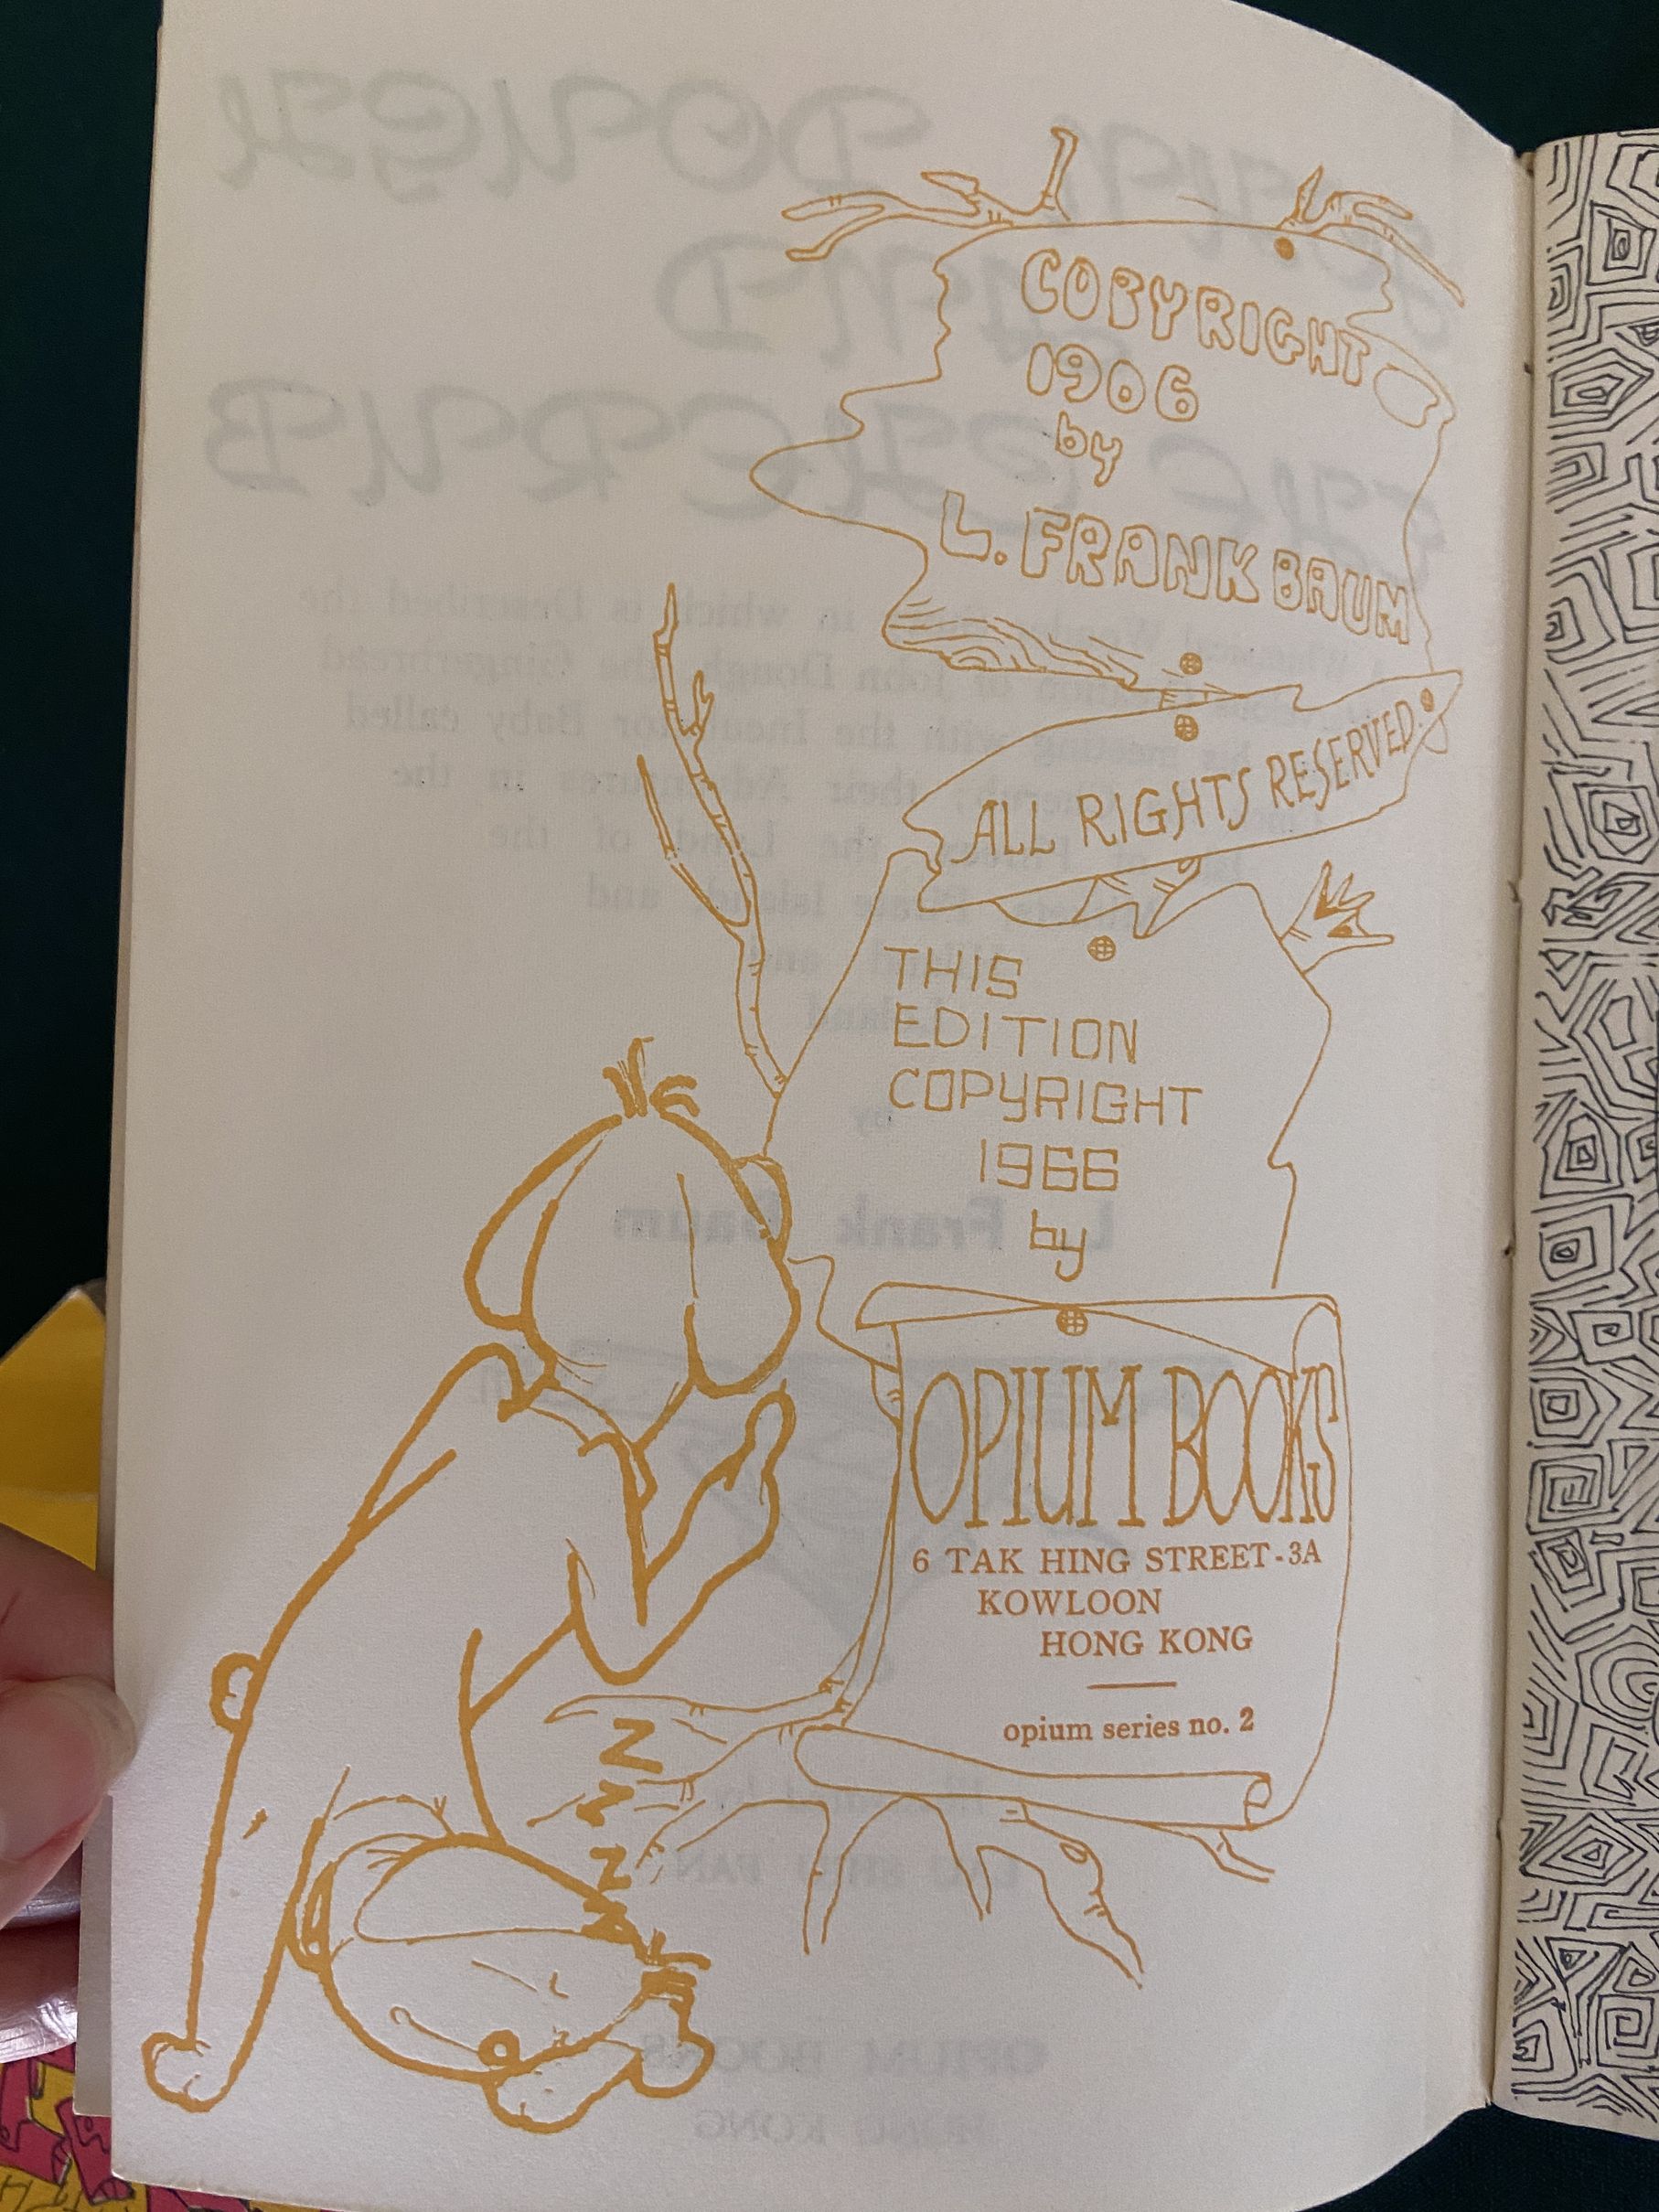 COPYRIGHT
1906
by
L. FRANK BAUM
ALL RIGHTS RESERVED.
THIS
EDITION
COPYRIGHT
1966
by
OPIUM BOOKS
6 TAK HING STREET-3A
KOWLOON
HONG KONG
opium series no. 2
Z
Z
Z
Z